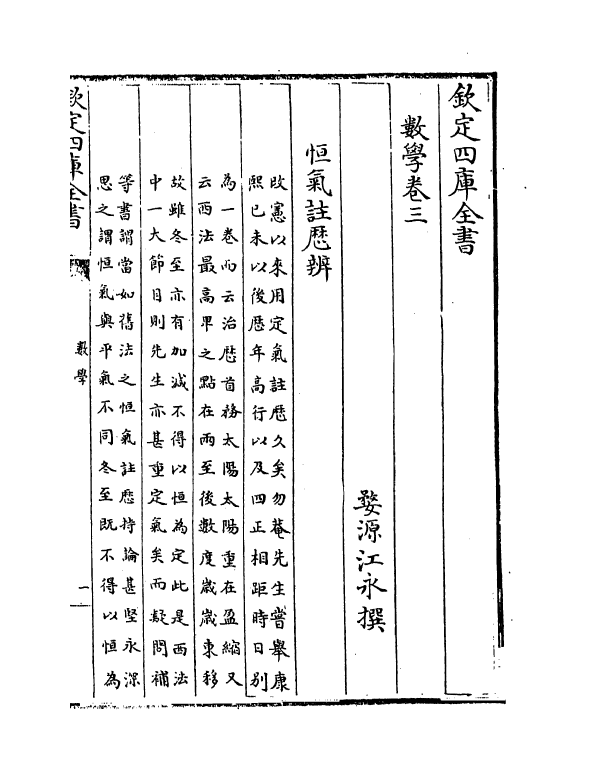 欽定四庫全書
數學卷三
婺源江永撰
恒氣註厯辨
改憲以來用定氣註厯久矣勿菴先生嘗舉康
熙已未以後厯年高行以及四正相距時日别
為一卷而云治厯首務太陽太陽重在盈縮又
云西法最高卑之㸃在兩至後數度歲歲東移
故雖冬至亦有加減不得以恒為定此是西法
中一大節目則先生亦甚重定氣矣而疑問補
等書謂當如舊法之恒氣註厯持論甚堅永深
思之謂恒氣與平氣不同冬至既不得以恒為
欽定四庫全書
數學
一